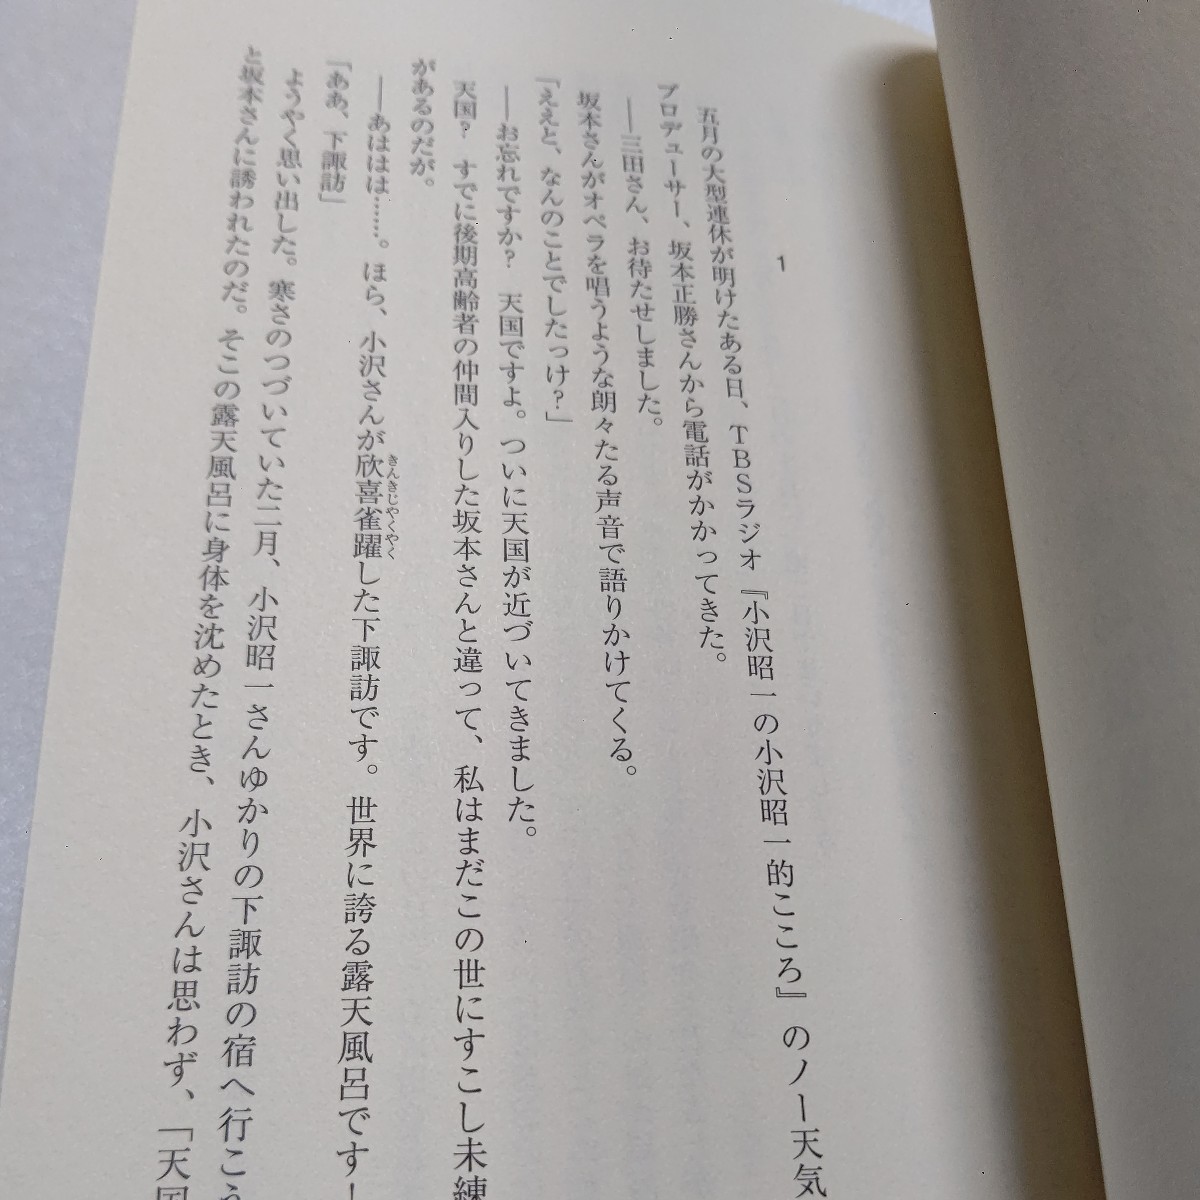 1
五月の大型連休が明けたある日、TBSラジオ『小沢昭一の小沢昭一的こころ』のノー天気
プロデューサー、坂本正勝さんから電話がかかってきた。
――三田さん、お待たせしました。
坂本さんがオペラを唱うような朗々たる声音で語りかけてくる。
「ええと、なんのことでしたっけ?」
――お忘れですか? 天国ですよ。ついに天国が近づいてきました。
天国? すでに後期高齢者の仲間入りした坂本さんと違って、私はまだこの世にすこし未練
があるのだが。
――あははは……。ほら、小沢さんが欣喜雀躍した下諏訪です。世界に誇る露天風呂です!
きんきじゃくやく
「ああ、下諏訪」
ようやく思い出した。寒さのつづいていた二月、小沢昭一さんゆかりの下諏訪の宿へ行こう
と坂本さんに誘われたのだ。そこの露天風呂に身体を沈めたとき、小沢さんは思わず、「天国